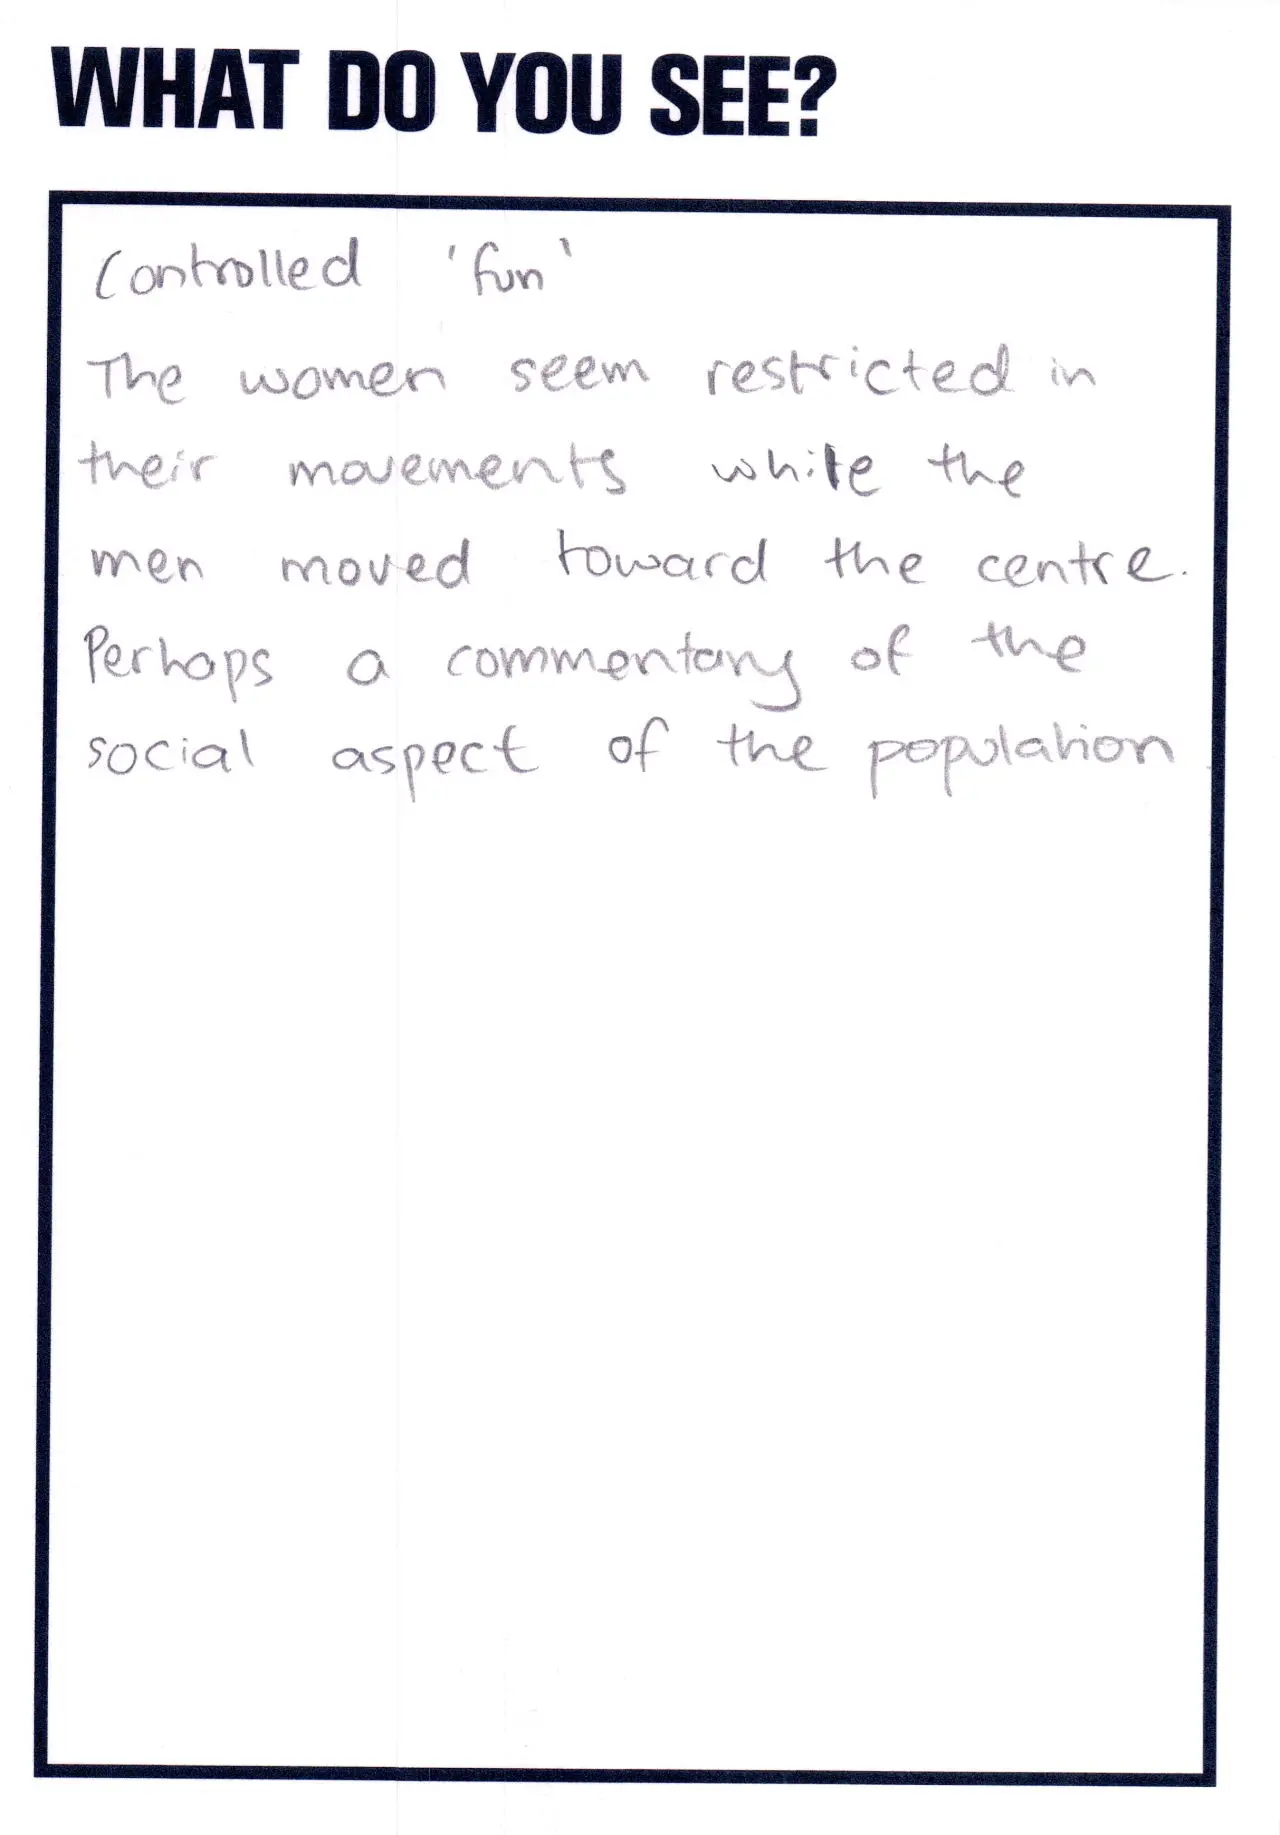 WHAT DO YOU SEE?
Controlled 'fun'
The women seem restricted in
their movements while the
men moved toward the centre.
Perhaps a commentary of the
social aspect of the population